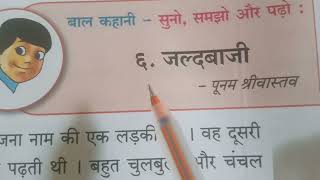 बाल कहानी – सुनो, समझो और पढ़ो :
६. जल्दबाजी
– पूनम श्रीवास्तव
जना नाम की एक लड़की । वह दूसरी
पढ़ती थी । बहुत और चंचल